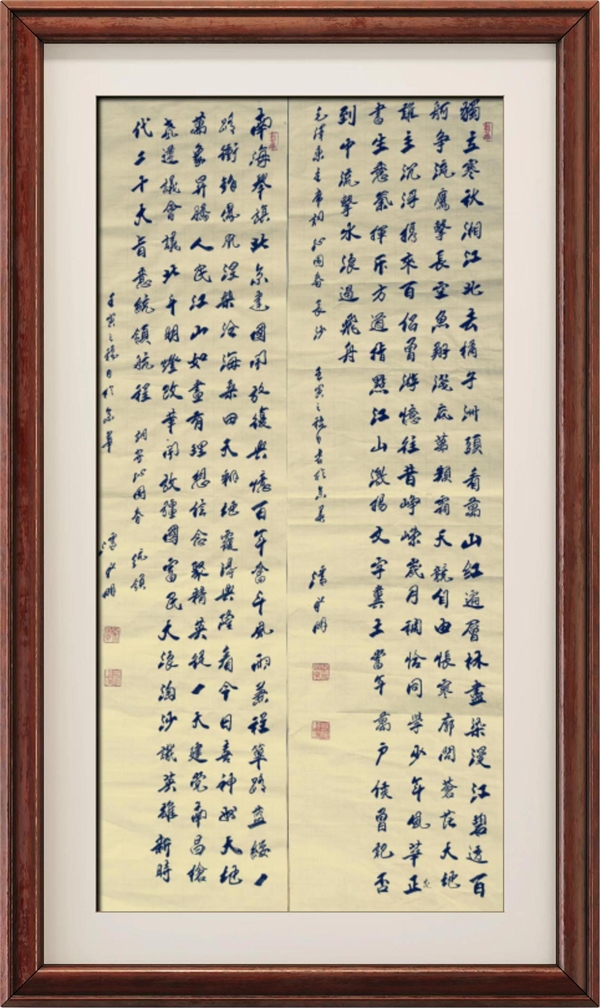 獨立寒秋湘江北去橘子洲頭看萬山紅遍層林盡染漫江碧透百
舸争流鷹擊長空魚翔淺底萬類霜天競自由悵寥廓問蒼茫大地
誰主沉浮攜來百侣曾游憶往昔崢嶸歲月稠恰同學少年風華正茂
書生意氣揮斥方遒指點江山激揚文字糞土當年萬户侯曾記否
到中流擊水浪遏飛舟
毛澤東主席詞 沁園春 長沙 壬寅之秋日書於京華 潘 明
南海舉旗北京建國開放復興憶百年奮斗風雨兼程篳路藍縷
凰涅槃滄海桑田天翻地覆得興隆看今日喜神州大地
萬象昇騰人民江山如畫有理想信念聚精英 天建党南昌槍
遵議會議北斗明燈改革開放強國富民大浪淘沙 英雄新時
代二十大 統領航程 詞寄沁園春 統領
壬寅之秋日於京華 潘 明